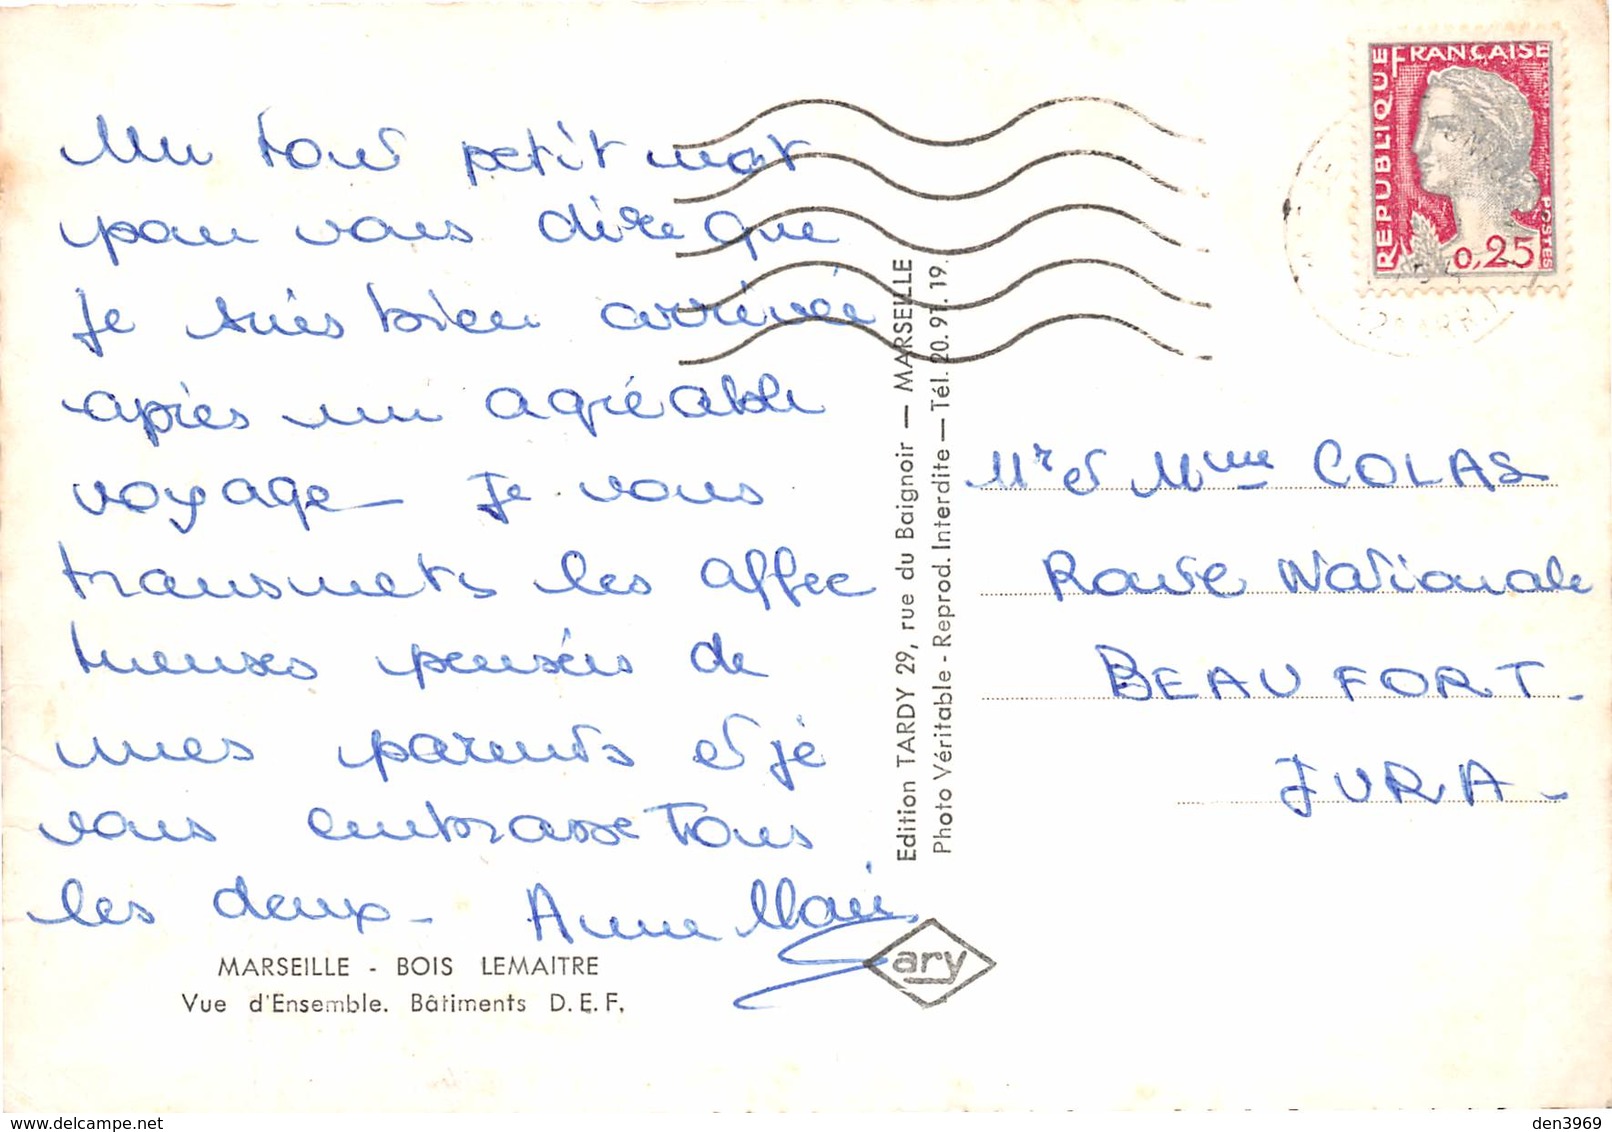 Un tout petit mot
pour vous dire que
je suis bien arrivée
après un agréable
voyage - Je vous
transmets les affec
tueuses pensées de
mes parents et je
vous embrasse Tous
les deux - Anne Marie
MARSEILLE - BOIS LEMAITRE
Vue d'Ensemble. Bâtiments D.E.F.
Edition TARDY 29, rue du Baignoir — MARSEILLE
Photo Véritable - Reprod. Interdite — Tél. 20.91.19.
ary
RÉPUBLIQUE FRANÇAISE
POSTES
0,25
Mr et Mme COLAS
Route Nationale
BEAUFORT -
JURA -
den3969